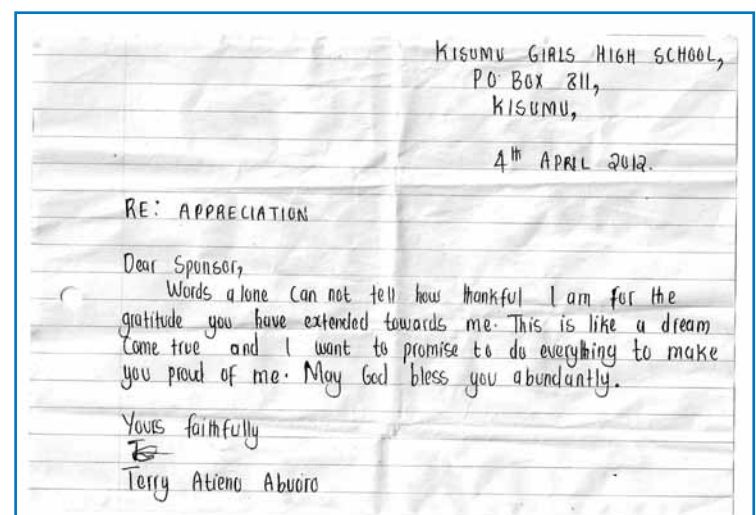 KISUMU GIRLS HIGH SCHOOL,
PO BOX 811,
KISUMU,
4th APRIL 2012.
RE: APPRECIATION
Dear Sponsor,
Words alone can not tell how thankful I am for the
gratitude you have extended towards me. This is like a dream
come true and I want to promise to do everything to make
you proud of me. May God bless you abundantly.
Yours faithfully
Terry Atieno Abuoro